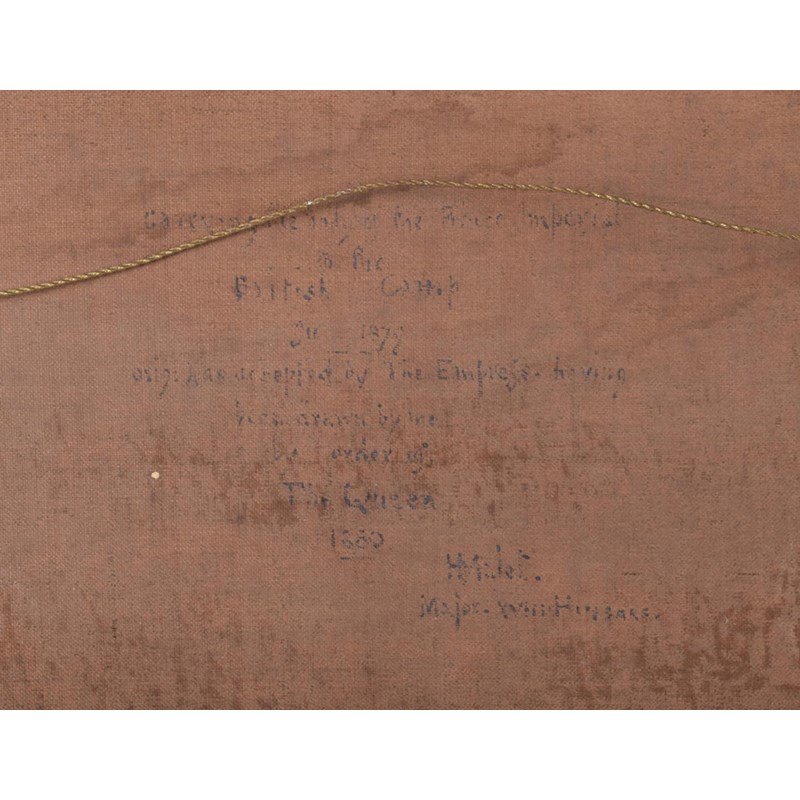 Carrying the body of the Prince Imperial
to the
British Camp
1879
orig: was accepted by The Empress- having
been drawn by me
by order of
The Queen
1880
Major- XVIII Hussars.